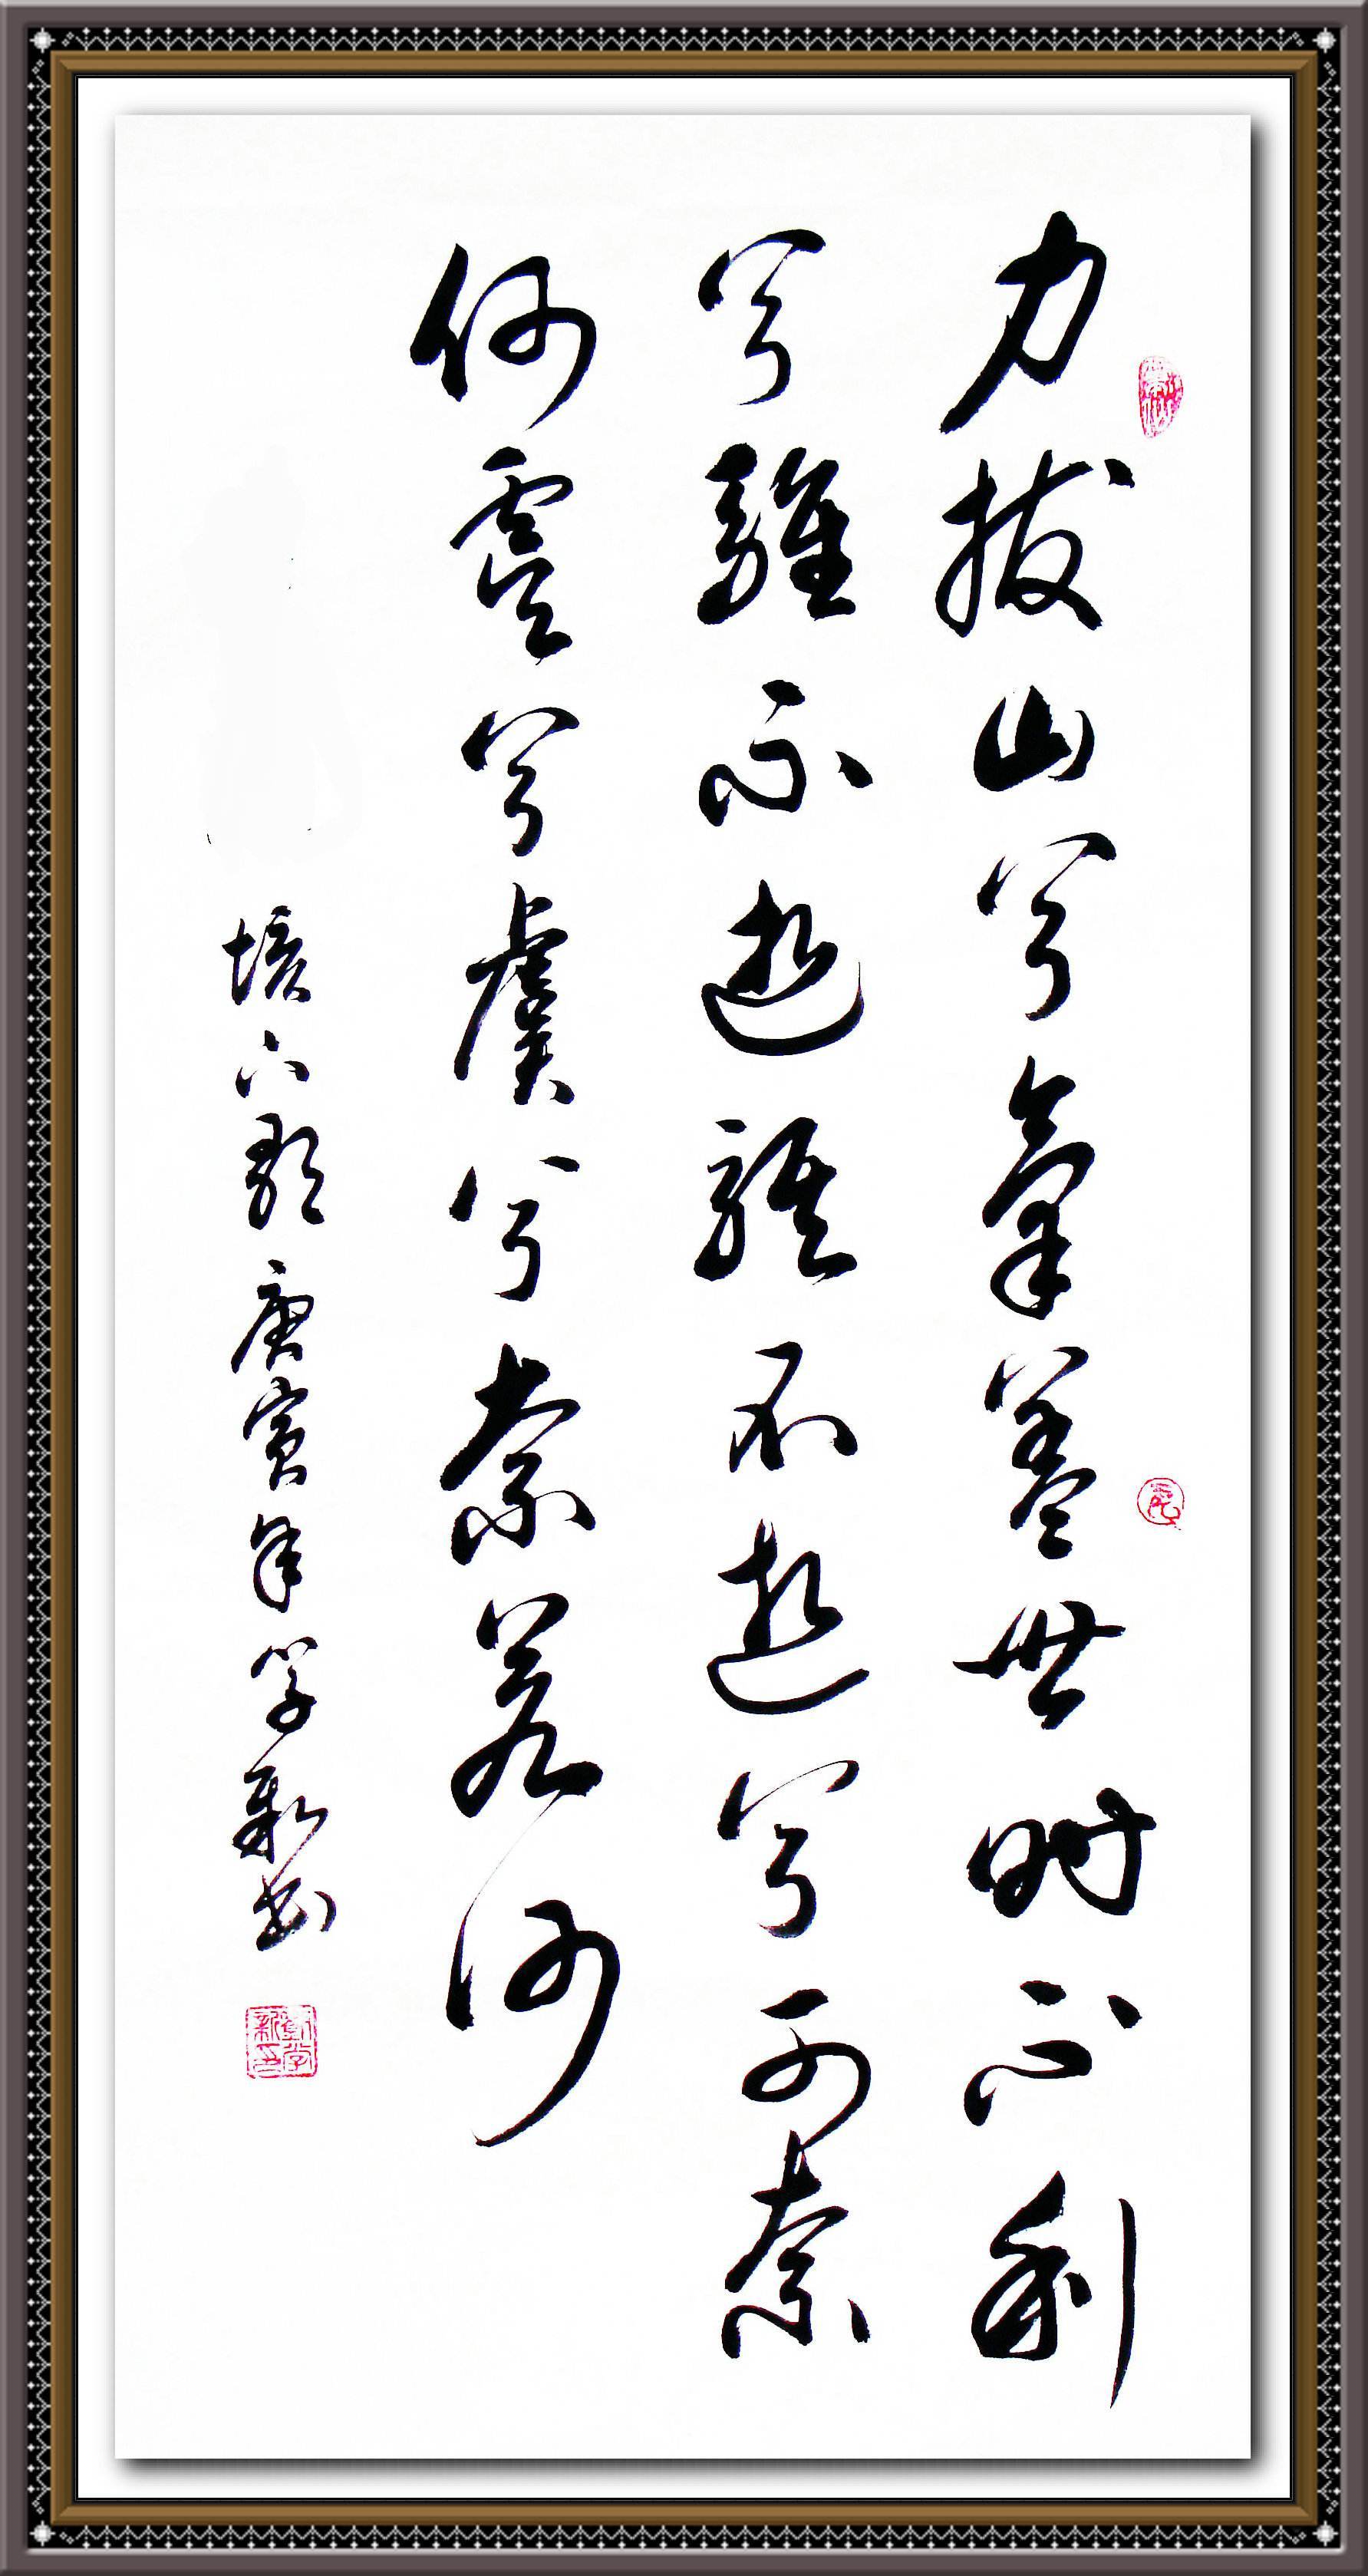 力拔山兮氣蓋世时不利
兮骓不逝骓不逝兮可奈
何虞兮虞兮奈若何
垓下歌庚寅年学新书